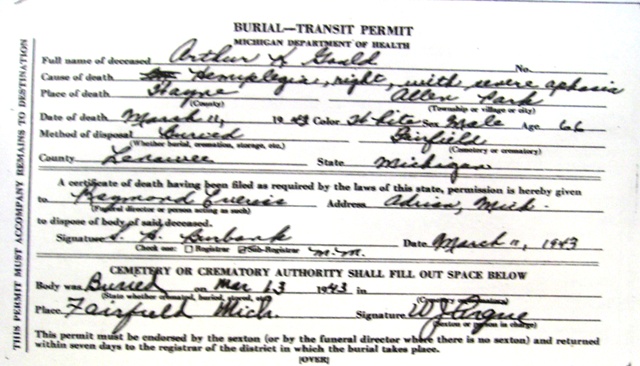 BURIAL—TRANSIT PERMIT
MICHIGAN DEPARTMENT OF HEALTH
Full name of deceased Arthur K Gould No.
Cause of death Hemiplegia, right, with severe aphasia
Place of death Wayne Allen Park
(County) (Township or village or city)
Date of death March 11, 1943 Color White Sex Male Age 66
Method of disposal Buried Fairfield
(Whether burial, cremation, storage, etc.) (Cemetery or crematory)
County Lenawee State Michigan
A certificate of death having been filed as required by the laws of this state, permission is hereby given
to Raymond Address Adrian, Mich.
(Funeral director or person acting as such)
to dispose of body of said deceased.
Signature Burbank Date March 11, 1943
Check one: Registrar Sub-Registrar M.M.
CEMETERY OR CREMATORY AUTHORITY SHALL FILL OUT SPACE BELOW
Body was Buried on Mar 13 1943 in
(State whether cremated, buried, stored, etc.)
Place Fairfield Mich. Signature W J Argue
(Sexton or person in charge)
This permit must be endorsed by the sexton (or by the funeral director where there is no sexton) and returned
within seven days to the registrar of the district in which the burial takes place.
[OVER]
THIS PERMIT MUST ACCOMPANY REMAINS TO DESTINATION